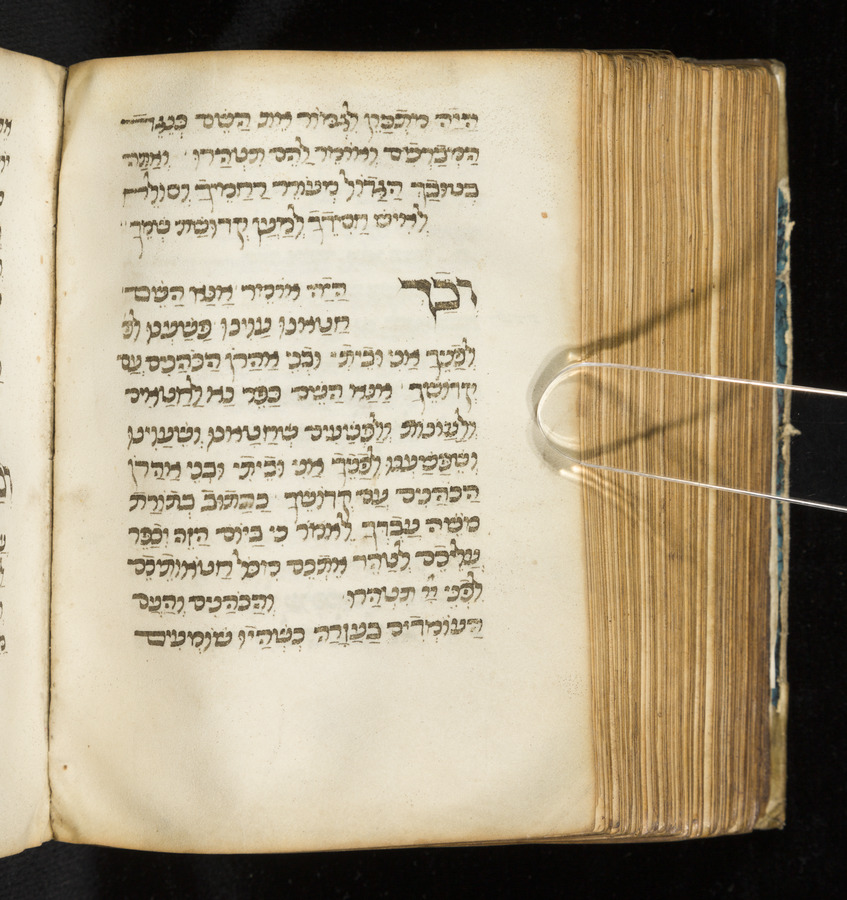 היה מתכון לגמור את השם כנגד
המברכים ואומר להם תטהרו ואתה
בטובך הגדול מעורר רחמיך וסולח
לאיש חסידך למען קדושת שמך
וכך היה אומר אנא השם
חטאנו עוינו פשענו לפ
לפניך אני וביתי ובני אהרן הכהנים עם
קדושך אנא השם כפר נא לחטאים
ולעונות ולפשעים שחטאנו ושעוינו
ושפשענו לפניך אני וביתי ובני אהרן
הכהנים עם קדושך ככתוב בתורת
משה עבדך לאמר כי ביום הזה יכפר
עליכם לטהר אתכם מכל חטאותיכם
לפני יי תטהרו והכהנים והעם
העומדים בעזרה כשהיו שומעים